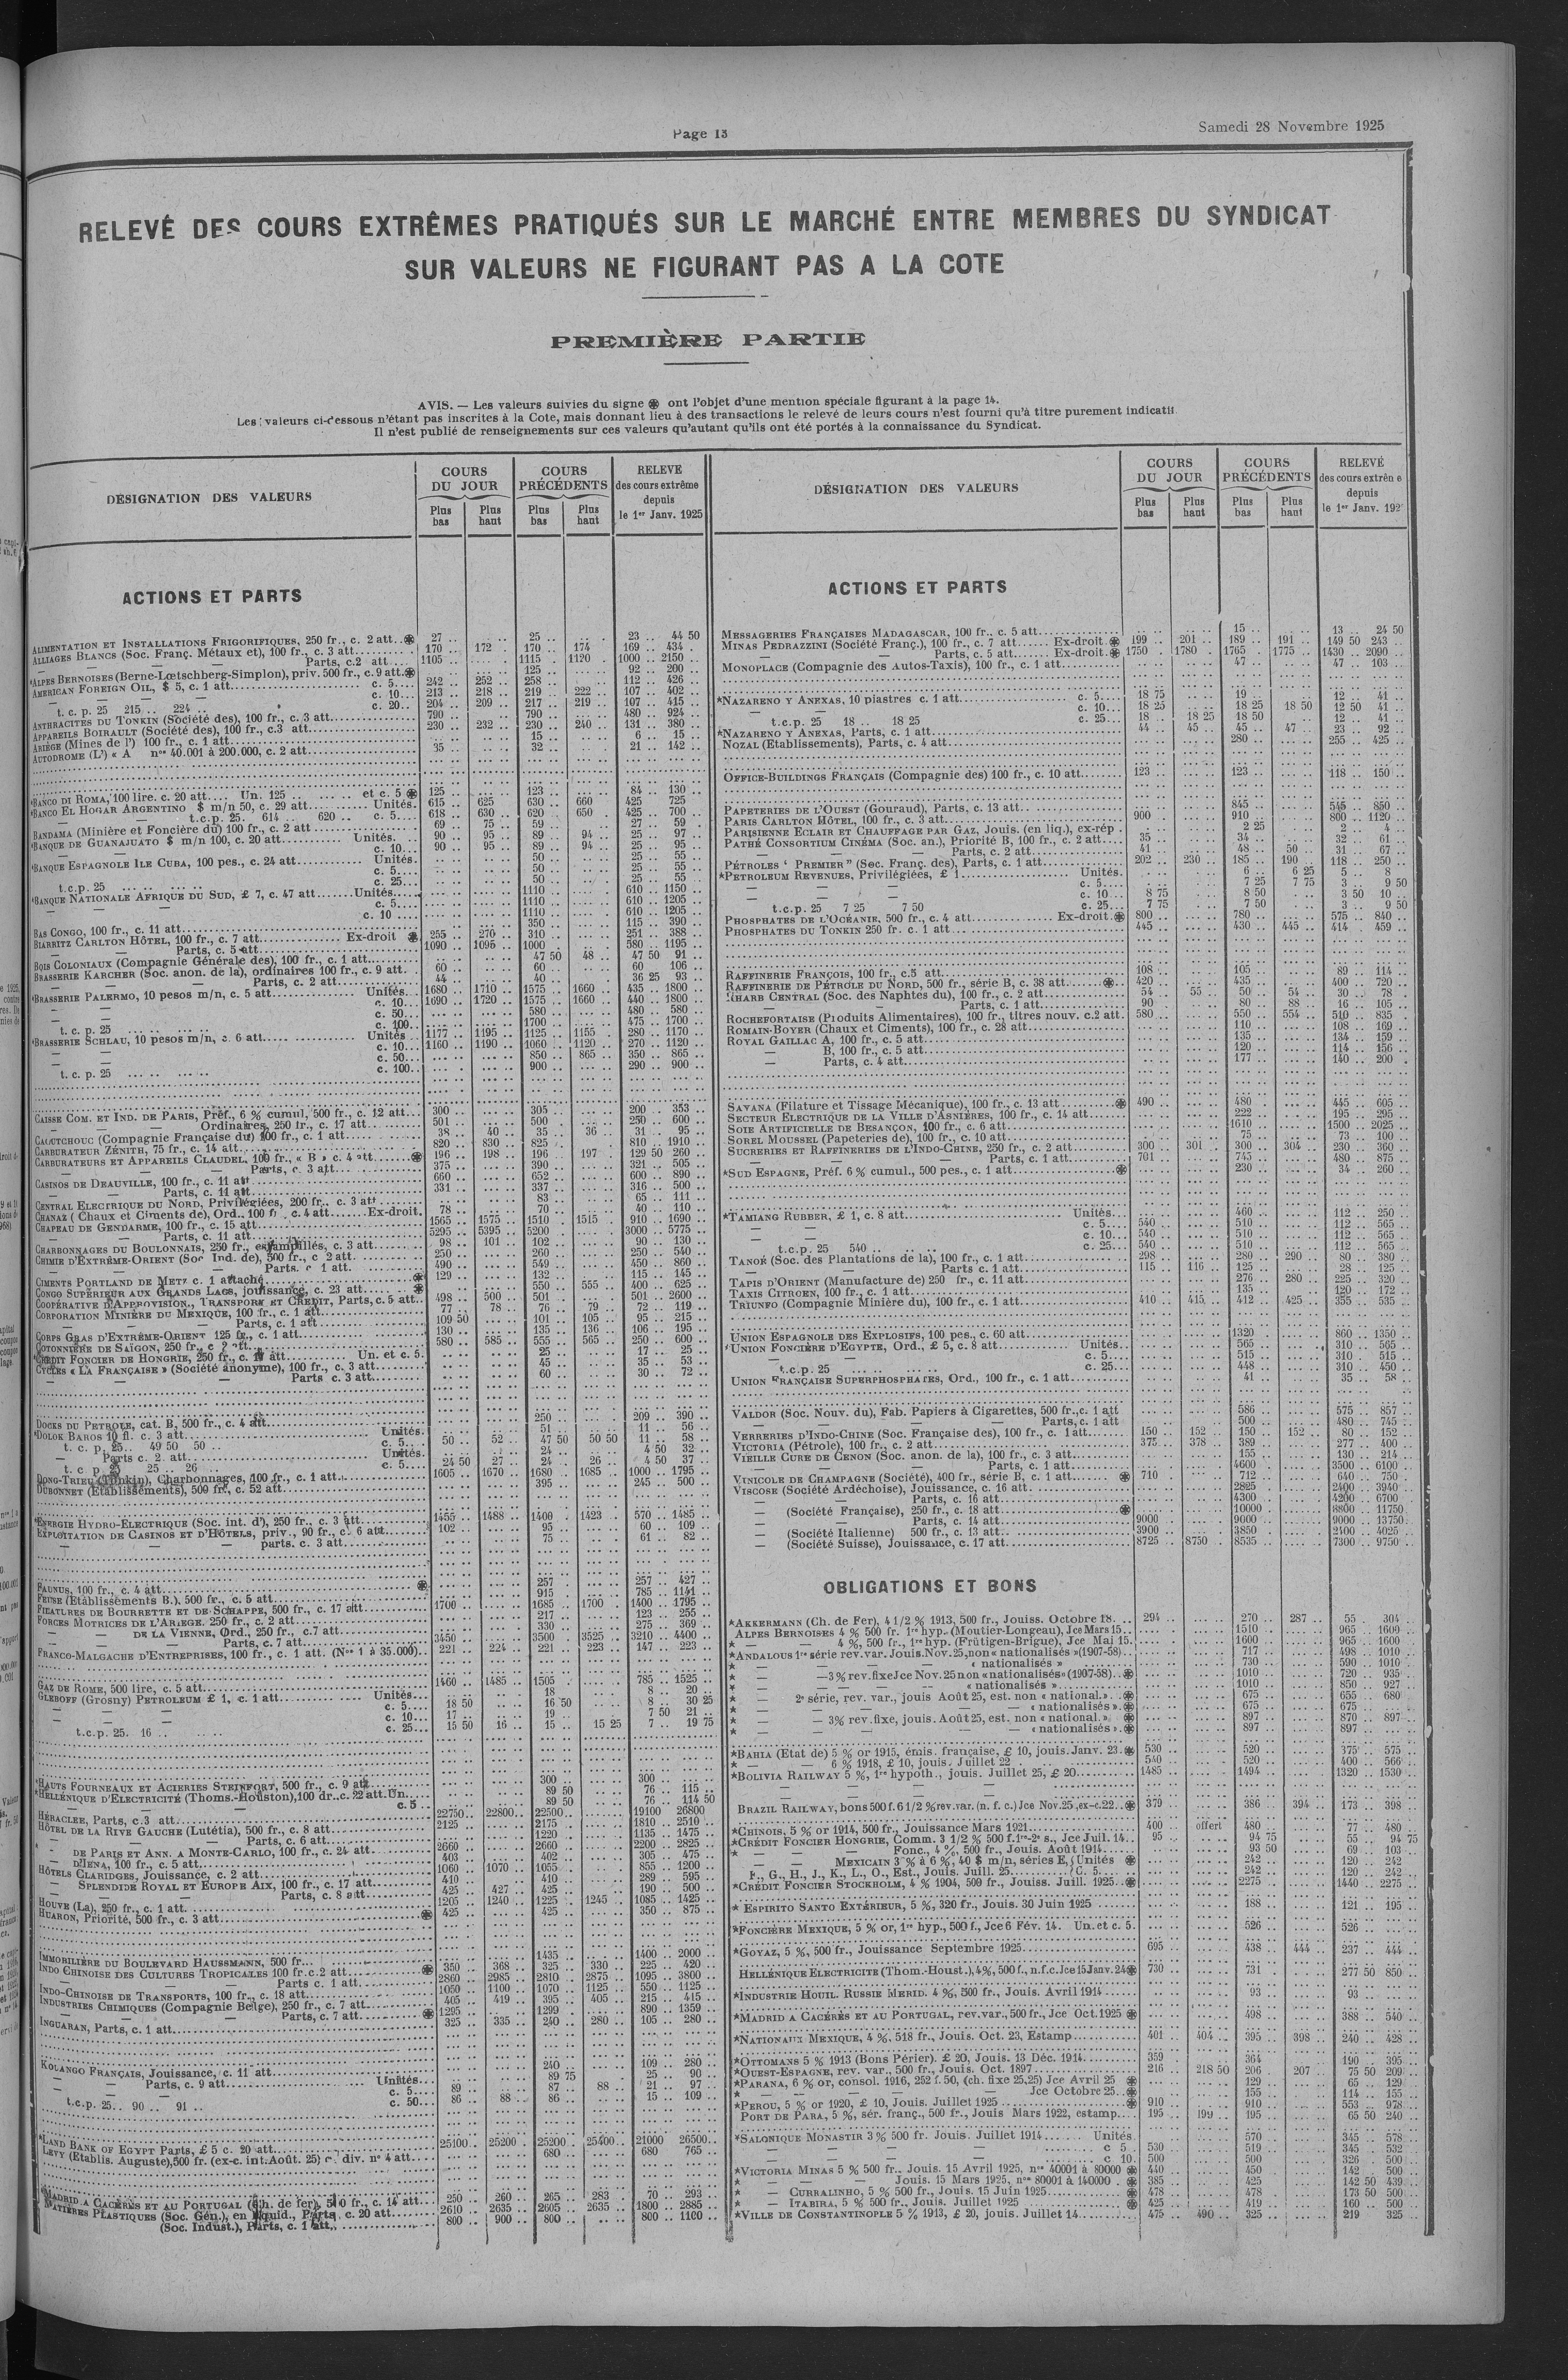 Page 13
Samedi 28 Novembre 1925
RELEVÉ DES COURS EXTRÊMES PRATIQUÉS SUR LE MARCHÉ ENTRE MEMBRES DU SYNDICAT
SUR VALEURS NE FIGURANT PAS A LA COTE
PREMIÈRE PARTIE
AVIS. — Les valeurs suivies du signe ❋ ont l'objet d'une mention spéciale figurant à la page 14.
Les valeurs ci-dessous n'étant pas inscrites à la Cote, mais donnant lieu à des transactions le relevé de leurs cours n'est fourni qu'à titre purement indicatif
Il n'est publié de renseignements sur ces valeurs qu'autant qu'ils ont été portés à la connaissance du Syndicat.
DÉSIGNATION DES VALEURS
COURS DU JOUR
Plus bas
Plus haut
COURS PRÉCÉDENTS
Plus bas
Plus haut
RELEVE des cours extrême depuis le 1er Janv. 1925
ACTIONS ET PARTS
ALIMENTATION ET INSTALLATIONS FRIGORIFIQUES, 250 fr., c. 2 att..❋ 27 .. 25 .. 23 .. 44 50
ALLIAGES BLANCS (Soc. Franç. Métaux et), 100 fr., c. 3 att. 170 .. 172 .. 170 .. 174 169 .. 434 ..
— — Parts, c.2 att. 1105 .. 1115 .. 1120 .. 1000 .. 2150 ..
*ALPES BERNOISES (Berne-Lœtschberg-Simplon), priv. 500 fr., c. 9 att.❋ 125 .. 92 .. 200 ..
AMERICAN FOREIGN OIL, $ 5, c. 1 att. c. 5 242 .. 252 .. 258 .. 112 .. 426 ..
— c. 10 213 .. 218 .. 219 .. 222 .. 107 .. 402 ..
t. c. p. 25 215 .. 224 .. c. 20 204 .. 209 .. 217 .. 219 .. 107 .. 415 ..
ANTHRACITES DU TONKIN (Société des), 100 fr., c. 3 att. 790 .. 790 .. 480 .. 924 ..
APPAREILS BOIRAULT (Société des), 100 fr., c.3 att. 230 .. 232 .. 230 .. 240 .. 131 .. 380 ..
ARIÈGE (Mines de l') 100 fr., c. 1 att. 15 .. 6 .. 15 ..
AUTODROME (L') « A nos 40.001 à 200.000, c. 2 att. 35 .. 32 .. 21 .. 142 ..
*BANCO DI ROMA, 100 lire. c. 20 att. Un. 125 .. et c. 5 ❋ 125 .. 123 .. 84 .. 130 ..
*BANCO EL HOGAR ARGENTINO $ m/n 50, c. 29 att. Unités. 615 .. 625 630 .. 660 425 725
— t.c.p. 25. 614 .. 620 .. c. 5 618 .. 630 .. 620 .. 650 425 .. 700 ..
BANDAMA (Minière et Foncière du) 100 fr., c. 2 att. 69 .. 75 .. 59 .. 27 .. 59 ..
*BANQUE DE GUANAJUATO $ m/n 100, c. 20 att. Unités. 90 .. 95 .. 89 .. 94 .. 25 .. 97 ..
c. 10 90 .. 95 .. 89 .. 94 .. 25 .. 95 ..
*BANQUE ESPAGNOLE ILE CUBA, 100 pes., c. 24 att. Unités. 50 .. 25 .. 55 ..
c. 5 50 .. 25 .. 55 ..
t.c.p. 25 c. 25 50 .. 25 .. 55 ..
*BANQUE NATIONALE AFRIQUE DU SUD, £ 7, c. 47 att. Unités. 1110 .. 610 .. 1150 ..
c. 5 1110 .. 610 .. 1205 ..
c. 10 1110 .. 610 .. 1205 ..
BAS CONGO, 100 fr., c. 11 att. 350 .. 115 .. 390 ..
BIARRITZ CARLTON HÔTEL, 100 fr., c. 7 att. Ex-droit ❋ 255 .. 270 .. 310 .. 251 .. 388 ..
— Parts, c. 5 att. 1090 .. 1095 .. 1000 .. 580 .. 1195 ..
BOIS COLONIAUX (Compagnie Générale des), 100 fr., c. 1 att. 47 50 48 .. 47 50 91 ..
BRASSERIE KARCHER (Soc. anon. de la), ordinaires 100 fr., c. 9 att. 60 .. 60 .. 60 106 ..
— — Parts, c. 2 att. 44 .. 40 .. 36 25 93 ..
*BRASSERIE PALERMO, 10 pesos m/n, c. 5 att. Unités 1680 .. 1710 .. 1575 .. 1660 .. 435 .. 1800 ..
c. 10 1690 .. 1720 .. 1575 .. 1660 .. 440 .. 1800 ..
c. 50 580 .. 480 .. 580 ..
t. c. p. 25 c. 100 1700 .. 475 .. 1700 ..
*BRASSERIE SCHLAU, 10 pesos m/n, c. 6 att. Unités 1177 .. 1195 .. 1125 .. 1155 .. 280 .. 1170 ..
c. 10 1160 .. 1190 .. 1060 .. 1120 .. 270 .. 1120 ..
c. 50 850 .. 865 .. 350 .. 865 ..
t. c. p. 25 c. 100 900 .. 290 .. 900 ..
CAISSE COM. ET IND. DE PARIS, Préf., 6 % cumul, 500 fr., c. 12 att. 300 .. 305 .. 200 .. 353 ..
— Ordinaires, 250 fr., c. 17 att. 501 .. 500 .. 250 .. 600 ..
CAOUTCHOUC (Compagnie Française du) 100 fr., c. 1 att. 38 .. 40 .. 35 .. 36 .. 31 .. 95 ..
CARBURATEUR ZÉNITH, 75 fr., c. 14 att. 820 .. 830 .. 825 .. 810 .. 1910 ..
CARBURATEURS ET APPAREILS CLAUDEL, 100 fr., « B » c. 4 att. ❋ 196 .. 198 .. 196 .. 197 .. 129 50 260 ..
— — Parts, c. 3 att. 375 .. 390 .. 321 .. 505 ..
CASINOS DE DEAUVILLE, 100 fr., c. 11 att 660 .. 652 .. 600 .. 890 ..
— Parts, c. 11 att. 331 .. 337 .. 316 .. 500 ..
CENTRAL ELECTRIQUE DU NORD, Privilégiées, 200 fr., c. 3 att 83 .. 65 .. 111 ..
CHANAZ (Chaux et Ciments de), Ord., 100 fr., c. 4 att. Ex-droit. 78 .. 70 .. 40 .. 110 ..
CHAPEAU DE GENDARME, 100 fr., c. 15 att. 1565 .. 1575 .. 1510 .. 1515 .. 910 .. 1690 ..
— Parts, c. 11 att. 5295 .. 5395 .. 5200 .. 3000 .. 5775 ..
CHARBONNAGES DU BOULONNAIS, 250 fr., estampillés, c. 3 att. 98 .. 101 .. 102 .. 90 .. 130 ..
CHIMIE D'EXTRÊME-ORIENT (Soc. Ind. de), 500 fr., c. 2 att. 250 .. 260 .. 250 .. 540 ..
— Parts. c. 1 att. 490 .. 549 .. 450 .. 860 ..
CIMENTS PORTLAND DE METZ c. 1 attaché ❋ 129 .. 132 .. 115 .. 145 ..
CONGO SUPÉRIEUR AUX GRANDS LACS, jouissance, c. 23 att. ❋ 550 .. 555 .. 400 .. 625 ..
COOPÉRATIVE D'APPROVISION., TRANSPORT ET CRÉDIT, Parts, c. 5 att. 498 .. 500 .. 501 .. 501 .. 2600 ..
CORPORATION MINIÈRE DU MEXIQUE, 100 fr., c. 1 att. 77 .. 78 .. 76 .. 79 .. 72 .. 119 ..
— Parts, c. 1 att. 109 50 101 .. 105 .. 95 .. 215 ..
CORPS GRAS D'EXTRÊME-ORIENT 125 fr., c. 1 att. 130 .. 135 .. 136 .. 106 .. 195 ..
COTONNIÈRE DE SAÏGON, 250 fr., c. 2 att. 580 .. 585 .. 555 .. 565 .. 250 .. 600 ..
*CRÉDIT FONCIER DE HONGRIE, 250 fr., c. att. Un. et c. 5. 25 .. 17 .. 25 ..
CYCLES « LA FRANÇAISE » (Société anonyme), 100 fr., c. 3 att. 45 .. 35 .. 53 ..
— Parts c. 3 att. 60 .. 30 .. 72 ..
DOCKS DU PETROLE, cat. B, 500 fr., c. 4 att. 250 .. 209 .. 390 ..
*DOLOK BAROS 10 fl. c. 3 att. Unités. 51 .. 11 .. 56 ..
t. c. p. 25.. 49 50 50 .. c. 5 50 .. 52 .. 47 50 50 50 11 .. 58 ..
Parts c. 2. att. Unités. 24 .. 4 50 32 ..
t. c p 25 .. 26 .. c. 5 24 50 27 .. 24 .. 26 .. 4 50 37 ..
DONG-TRIEU (Tonkin), Charbonnages, 100 fr., c. 1 att. 1605 .. 1670 .. 1680 .. 1685 .. 1000 .. 1795 ..
DUBONNET (Etablissements), 500 fr., c. 52 att. 395 .. 245 .. 500 ..
*ENERGIE HYDRO-ELECTRIQUE (Soc. int. d'), 250 fr., c. 3 att. 1455 .. 1488 .. 1400 .. 1423 .. 570 .. 1485 ..
EXPLOITATION DE CASINOS ET D'HÔTELS, priv., 90 fr., c. 6 att. 102 .. 95 .. 60 .. 109 ..
— parts. c. 3 att. 75 .. 61 .. 82 ..
FAUNUS, 100 fr., c. 4 att. ❋ 257 .. 257 .. 427 ..
FEUSE (Etablissements B.), 500 fr., c. 5 att. 915 .. 785 .. 1141 ..
FILATURES DE BOURRETTE ET DE SCHAPPE, 500 fr., c. 17 att. 1700 .. 1685 .. 1700 .. 1400 .. 1795 ..
FORCES MOTRICES DE L'ARIEGE. 250 fr., c. 2 att. 217 .. 123 .. 255 ..
— DE LA VIENNE, Ord., 250 fr., c. 7 att. 330 .. 275 .. 369 ..
— — Parts, c. 7 att. 3450 .. 3500 .. 3525 .. 3210 .. 4400 ..
FRANCO-MALGACHE D'ENTREPRISES, 100 fr., c. 1 att. (Nos 1 à 35.000) 221 .. 224 .. 221 .. 223 .. 147 .. 223 ..
GAZ DE ROME, 500 lire, c. 5 att. 1460 .. 1485 .. 1505 .. 785 .. 1525 ..
GLEBOFF (Grosny) PETROLEUM £ 1, c. 1 att. Unités. 18 .. 8 .. 20 ..
c. 5 18 50 16 50 8 .. 30 25
c. 10 17 .. 19 .. 7 50 21 ..
t.c.p. 25. 16 .. c. 25 15 50 16 .. 15 .. 15 25 7 .. 19 75
*HAUTS FOURNEAUX ET ACIERIES STEINFORT, 500 fr., c. 9 att. 300 .. 300 ..
*HELLÉNIQUE D'ELECTRICITÉ (Thoms.-Houston), 100 dr., c. 22 att. Un. 89 50 76 .. 115 ..
c. 5 89 50 76 .. 114 50
HÉRACLEE, Parts, c.3 att. 22750 .. 22800 .. 22500 .. 19100 26800
HÔTEL DE LA RIVE GAUCHE (Lutétia), 500 fr., c. 8 att. 2125 .. 2175 .. 1810 .. 2510 ..
— Parts, c. 6 att. 1220 .. 1135 .. 1475 ..
— DE PARIS ET ANN. A MONTE-CARLO, 100 fr., c. 24 att. 2660 .. 2660 .. 2200 .. 2825 ..
— D'IENA, 100 fr., c. 5 att. 403 .. 402 .. 305 .. 475 ..
HÔTELS CLARIDGES, Jouissance, c. 2 att. 1060 .. 1070 .. 1055 .. 855 .. 1200 ..
SPLENDIDE ROYAL ET EUROPE AIX, 100 fr., c. 17 att. 410 .. 410 .. 289 .. 595 ..
— Parts, c. 8 att. 425 .. 427 .. 425 .. 190 .. 500 ..
HOUVE (La), 250 fr., c. 1 att. 1205 .. 1240 .. 1225 .. 1245 .. 1085 .. 1425 ..
HUARON, Priorité, 500 fr., c. 3 att. ❋ 425 .. 425 .. 350 .. 875 ..
IMMOBILIÈRE DU BOULEVARD HAUSSMANN, 500 fr. 1435 .. 1400 .. 2000 ..
INDO CHINOISE DES CULTURES TROPICALES 100 fr.c.2 att. ❋ 350 .. 368 .. 325 .. 330 .. 225 .. 420
— Parts c. 1 att. 2860 .. 2985 .. 2810 .. 2875 .. 1095 .. 3800 ..
INDO-CHINOISE DE TRANSPORTS, 100 fr., c. 18 att. 1050 .. 1100 .. 1070 .. 1125 .. 550 .. 1125
INDUSTRIES CHIMIQUES (Compagnie Belge), 250 fr., c. 7 att. 405 .. 419 .. 395 .. 405 .. 215 .. 415 ..
— — Parts, c. 7 att. ❋ 1295 .. 1299 .. 890 .. 1359 ..
INGUARAN, Parts, c. 1 att. 325 .. 335 .. 240 .. 280 .. 105 .. 280 ..
KOLANGO FRANÇAIS, Jouissance, c. 11 att. 240 .. 109 .. 280 ..
— Parts, c. 9 att. Unités 89 75 25 .. 90 ..
c. 5 89 .. 87 .. 88 .. 21 .. 97 ..
t.c.p. 25.. 90 .. 91 .. c. 50 86 .. 88 .. 86 .. 15 .. 109 ..
*LAND BANK OF EGYPT Parts, £ 5 c. 20 att. 25100 .. 25200 .. 25200 .. 25400 .. 21000 26500 ..
LEVY (Etablis. Auguste), 500 fr. (ex-c. int. Août. 25) r. div. n° 4 att. 680 .. 680 765 ..
*MADRID A CACÉRÈS ET AU PORTUGAL (Ch. de fer), 500 fr., c. 14 att. 250 .. 260 .. 265 .. 283 .. 70 .. 293 ..
MATIÈRES PLASTIQUES (Soc. Gén.), en liquid., Parts, c. 20 att. 2610 .. 2635 .. 2605 .. 2635 .. 1800 .. 2885 ..
(Soc. Indust.), Parts, c. 1 att. 800 .. 900 .. 800 .. 800 .. 1100 ..
DÉSIGNATION DES VALEURS
COURS DU JOUR
Plus bas
Plus haut
COURS PRÉCÉDENTS
Plus bas
Plus haut
RELEVÉ des cours extrêm e depuis le 1er Janv. 192
ACTIONS ET PARTS
MESSAGERIES FRANÇAISES MADAGASCAR, 100 fr., c. 5 att. 15 .. 13 .. 24 50
MINAS PEDRAZZINI (Société Franç.), 100 fr., c. 7 att. Ex-droit.❋ 199 .. 201 .. 189 .. 191 .. 149 50 243 ..
— — Parts, c. 5 att. Ex-droit ❋ 1750 .. 1780 .. 1765 .. 1775 .. 1430 .. 2090 ..
MONOPLACE (Compagnie des Autos-Taxis), 100 fr., c. 1 att. 47 .. 47 .. 103 ..
*NAZARENO Y ANEXAS, 10 piastres c. 1 att. c. 5 18 75 19 .. 12 .. 41 ..
c. 10 18 25 18 25 18 50 12 50 41 ..
t.c.p. 25 18 .. 18 25 c. 25 18 .. 18 25 18 50 12 .. 41 ..
*NAZARENO Y ANEXAS, Parts, c. 1 att. 44 .. 45 .. 45 .. 47 .. 23 .. 92 ..
NOZAL (Etablissements), Parts, c. 4 att. 280 .. 255 .. 425 ..
OFFICE-BUILDINGS FRANÇAIS (Compagnie des) 100 fr., c. 10 att. 123 .. 123 .. 118 .. 150 ..
PAPETERIES DE L'OUEST (Gouraud), Parts, c. 13 att. 845 .. 545 .. 850 ..
PARIS CARLTON HÔTEL, 100 fr., c. 3 att. 900 .. 910 .. 800 .. 1120 ..
PARISIENNE ECLAIR ET CHAUFFAGE PAR GAZ, Jouis. (en liq.), ex-rép. 2 25 2 .. 4 ..
PATHÉ CONSORTIUM CINÉMA (Soc. an.), Priorité B, 100 fr., c. 2 att. 35 .. 34 .. 32 .. 61 ..
— — Parts, c. 2 att. 41 .. 48 .. 50 .. 31 .. 67 ..
PÉTROLES “ PREMIER ” (Soc. Franç. des), Parts, c. 1 att. 202 .. 230 .. 185 .. 190 118 .. 250 ..
*PETROLEUM REVENUES, Privilégiées, £ 1 Unités. 6 .. 6 25 5 .. 8 ..
c. 5 7 25 7 75 3 .. 9 50
c. 10 8 75 8 50 3 50 10 ..
t.c.p. 25 7 25 7 50 c. 25 7 75 7 50 3 .. 9 50
PHOSPHATES DE L'OCÉANIE, 500 fr., c. 4 att. Ex-droit.❋ 800 .. 780 .. 575 .. 840 ..
PHOSPHATES DU TONKIN 250 fr. c. 1 att. 445 .. 430 .. 445 .. 414 .. 459 ..
RAFFINERIE FRANÇOIS, 100 fr., c.5 att. 108 .. 105 .. 89 .. 114 ..
RAFFINERIE DE PÉTROLE DU NORD, 500 fr., série B, c. 38 att. ❋ 420 .. 435 .. 400 .. 720 ..
RHARB CENTRAL (Soc. des Naphtes du), 100 fr., c. 2 att. 54 .. 55 .. 50 .. 54 .. 30 .. 78 ..
— — Parts, c. 1 att. 90 .. 80 .. 88 .. 16 .. 105 ..
ROCHEFORTAISE (Produits Alimentaires), 100 fr., titres nouv. c.2 att. 580 .. 550 .. 554 .. 510 .. 835 ..
ROMAIN-BOYER (Chaux et Ciments), 100 fr., c. 28 att. 110 .. 108 .. 169 ..
ROYAL GAILLAC A, 100 fr., c. 5 att. 135 .. 134 .. 159 ..
— B, 100 fr., c. 5 att. 120 .. 114 .. 156 ..
— Parts, c. 4 att. 177 .. 140 .. 200 .
SAVANA (Filature et Tissage Mécanique), 100 fr., c. 13 att. ❋ 490 .. 480 .. 445 .. 605 ..
SECTEUR ELECTRIQUE DE LA VILLE D'ASNIÈRES, 100 fr., c. 14 att. 222 .. 195 .. 295 ..
SOIE ARTIFICIELLE DE BESANÇON, 100 fr., c. 6 att. 1610 .. 1500 .. 2025 ..
SOREL MOUSSEL (Papeteries de), 100 fr., c. 10 att. 75 .. 73 .. 100 ..
SUCRERIES ET RAFFINERIES DE L'INDO-CHINE, 250 fr., c. 2 att. 300 .. 301 .. 300 .. 304 .. 230 .. 360 ..
— — Parts, c. 1 att. 701 .. 745 .. 480 .. 875 ..
*SUD ESPAGNE, Préf. 6 % cumul., 500 pes., c. 1 att. ❋ 230 .. 34 .. 260 ..
*TAMIANG RUBBER, £ 1, c. 8 att. Unités 460 .. 112 .. 250 ..
c. 5 540 .. 510 .. 112 .. 565 ..
c. 10 540 .. 510 .. 112 .. 565 ..
t.c.p. 25 540 .. c. 25 540 .. 510 .. 112 .. 565 ..
TANOÉ (Soc. des Plantations de la), 100 fr., c. 1 att. 298 .. 280 .. 290 .. 80 .. 380 ..
— Parts c. 1 att. 115 .. 116 .. 125 .. 28 .. 125 ..
TAPIS D'ORIENT (Manufacture de) 250 fr., c. 11 att. 276 .. 280 .. 225 .. 320 ..
TAXIS CITROEN, 100 fr., c. 1 att. 135 .. 120 .. 172 ..
TRIUNFO (Compagnie Minière du), 100 fr., c. 1 att. 410 .. 415 .. 412 .. 425 .. 355 .. 535 ..
UNION ESPAGNOLE DES EXPLOSIFS, 100 pes., c. 60 att. 1320 .. 860 .. 1350 ..
*UNION FONCIÈRE D'EGYPTE, Ord., £ 5, c. 8 att. Unités. 565 .. 310 .. 565 ..
c. 5 515 .. 310 .. 515 ..
t.c.p. 25 c. 25 448 .. 310 .. 450 ..
UNION FRANÇAISE SUPERPHOSPHATES, Ord., 100 fr., c. 1 att. 41 .. 35 .. 58 ..
VALDOR (Soc. Nouv. du), Fab. Papiers à Cigarettes, 500 fr., c. 1 att 586 .. 575 .. 857 ..
— — Parts, c. 1 att 500 .. 480 .. 745 ..
VERRERIES D'INDO-CHINE (Soc. Française des), 100 fr., c. 1 att. 150 .. 152 .. 150 .. 152 .. 80 .. 152 ..
VICTORIA (Pétrole), 100 fr., c. 2 att. 375 .. 378 .. 389 .. 277 .. 400 ..
VIEILLE CURE DE CENON (Soc. anon. de la), 100 fr., c. 3 att. 155 .. 130 .. 214 ..
— — Parts, c. 1 att. 4600 .. 3500 .. 6100 ..
VINICOLE DE CHAMPAGNE (Société), 400 fr., série B, c. 1 att. ❋ 710 .. 712 .. 640 .. 750 ..
VISCOSE (Société Ardéchoise), Jouissance, c. 16 att. 2825 .. 2400 .. 3940 ..
— Parts, c. 16 att. 4300 .. 4200 .. 6700 ..
— (Société Française), 250 fr., c. 18 att. ❋ 10000 .. 8800 .. 11750
— Parts, c. 14 att. 9000 .. 9000 .. 9000 .. 13750
— (Société Italienne) 500 fr., c. 13 att. 3900 .. 3850 .. 2100 .. 4025 ..
— (Société Suisse), Jouissance, c. 17 att. 8725 .. 8750 .. 8535 .. 7300 .. 9750 ..
OBLIGATIONS ET BONS
*AKKERMANN (Ch. de Fer), 4 1/2 % 1913, 500 fr., Jouiss. Octobre 18. 294 .. 270 .. 287 .. 55 .. 304 ..
ALPES BERNOISES 4 % 500 fr. 1re hyp. (Moutier-Longeau), Jce Mars 15 1510 .. 965 .. 1600 ..
— 4 %, 500 fr., 1re hyp. (Frütigen-Brigue), Jce Mai 15. 1600 .. 965 .. 1600 ..
*ANDALOUS 1re série rev. var. Jouis. Nov. 25, non « nationalisés » (1907-58) 717 .. 498 .. 1010 ..
* — — « nationalisés » 730 .. 590 .. 1010 ..
* — — 3 % rev. fixe Jce Nov. 25 non « nationalisés » (1907-58). ❋ 1010 .. 720 .. 935 ..
* — — « nationalisés » 1010 .. 850 .. 927 ..
* — 2e série, rev. var., jouis Août 25, est. non « national. » ❋ 675 .. 655 .. 680
* — — « nationalisés » ❋ 675 .. 675 ..
* — — 3% rev. fixe, jouis. Août 25, est. non « national. » ❋ 897 .. 870 .. 897 ..
* — — « nationalisés ». ❋ 897 .. 897 ..
*BAHIA (Etat de) 5 % or 1915, émis. française, £ 10, jouis. Janv. 23. ❋ 530 .. 520 .. 375 .. 575 ..
* — — 6 % 1918, £ 10, jouis. Juillet 22 540 .. 520 .. 400 .. 566 ..
*BOLIVIA RAILWAY 5 %, 1re hypoth., jouis. Juillet 25, £ 20 1485 .. 1494 .. 1320 .. 1530 ..
BRAZIL RAILWAY, bons 500 f. 6 1/2 % rev. var. (n. f. c.) Jce Nov. 25, ex-c. 22. ❋ 379 .. 386 .. 394 .. 173 .. 398 ..
*CHINOIS, 5 % or 1914, 500 fr., Jouissance Mars 1921 400 .. offert 480 .. 77 .. 480 ..
*CRÉDIT FONCIER HONGRIE, Comm. 3 1/2 % 500 f. 1re-2e s., Jce Juil. 14 95 .. 94 75 55 .. 94 75
* — — Fonc., 4 %, 500 fr., Jouis. Août 1914 93 50 69 .. 103 ..
* — — MEXICAIN 3 % à 6 %, 40 $ m/n, séries E, Unités ❋ 242 .. 120 .. 242 ..
F., G., H., J., K., L., O., Est., Jouis. Juill. 25 C. 5 242 .. 120 .. 242 ..
*CRÉDIT FONCIER STOCKHOLM, 4 % 1904, 500 fr., Jouiss. Juill. 1925 ❋ 2275 .. 1440 .. 2275 ..
* ESPIRITO SANTO EXTÉRIEUR, 5 %, 320 fr., Jouis. 30 Juin 1925 188 .. 121 .. 195 ..
*FONCIÈRE MEXIQUE, 5 % or, 1re hyp., 500 f., Jce 6 Fév. 14. Un. et c. 5. 526 .. 526 ..
*GOYAZ, 5 %, 500 fr., Jouissance Septembre 1925 695 .. 438 .. 444 .. 237 .. 444 ..
HELLÉNIQUE ELECTRICITE (Thom.-Houst.), 4 %, 500 f., n.f.c. Jce 15 Janv. 24 ❋ 730 .. 731 .. 277 50 850 ..
*INDUSTRIE HOUIL. RUSSIE MERID. 4 %, 500 fr., Jouis. Avril 1914 93 .. 93 ..
*MADRID A CACÉRÈS ET AU PORTUGAL, rev. var., 500 fr., Jce Oct. 1925 ❋ 498 .. 388 .. 540 ..
*NATIONAUX MEXIQUE, 4 %, 518 fr., Jouis. Oct. 23, Estamp 401 .. 404 .. 395 .. 398 .. 240 .. 428 ..
*OTTOMANS 5 % 1913 (Bons Périer). £ 20, Jouis. 13 Déc. 1914 359 .. 364 .. 190 .. 395 ..
*OUEST-ESPAGNE, rev. var., 500 fr., Jouis. Oct. 1897 216 .. 218 50 206 .. 207 .. 75 50 209 ..
*PARANA, 6 % or, consol. 1916, 252 f. 50, (ch. fixe 25,25) Jce Avril 25 ❋ 129 .. 65 .. 129 ..
* — Jce Octobre 25 ❋ 155 .. 114 .. 155 ..
*PEROU, 5 % or 1920, £ 10, Jouis. Juillet 1925 ❋ 910 .. 910 .. 553 .. 978 ..
PORT DE PARA, 5 %, sér. franç., 500 fr., Jouis Mars 1922, estamp. 195 .. 199 .. 195 .. 65 50 240 ..
*SALONIQUE MONASTIR 3 % 500 fr. Jouis. Juillet 1914 Unités. 570 .. 345 .. 578 ..
c 5 530 .. 519 .. 345 .. 532 ..
c 10 500 .. 500 .. 326 .. 500 ..
*VICTORIA MINAS 5 % 500 fr., Jouis. 15 Avril 1925, nos 40001 à 80000 ❋ 440 .. 450 .. 142 .. 500 ..
* — — Jouis. 15 Mars 1925, nos 80001 à 140000 . ❋ 385 .. 425 .. 142 50 439 ..
* — CURRALINHO, 5 % 500 fr., Jouis. 15 Juin 1925 ❋ 478 .. 478 .. 173 50 500 ..
* — ITABIRA, 5 % 500 fr., Jouis. Juillet 1925 ❋ 425 .. 419 .. 160 .. 500 ..
*VILLE DE CONSTANTINOPLE 5 % 1913, £ 20, jouis. Juillet 14 475 .. 490 .. 325 .. 219 325 ..